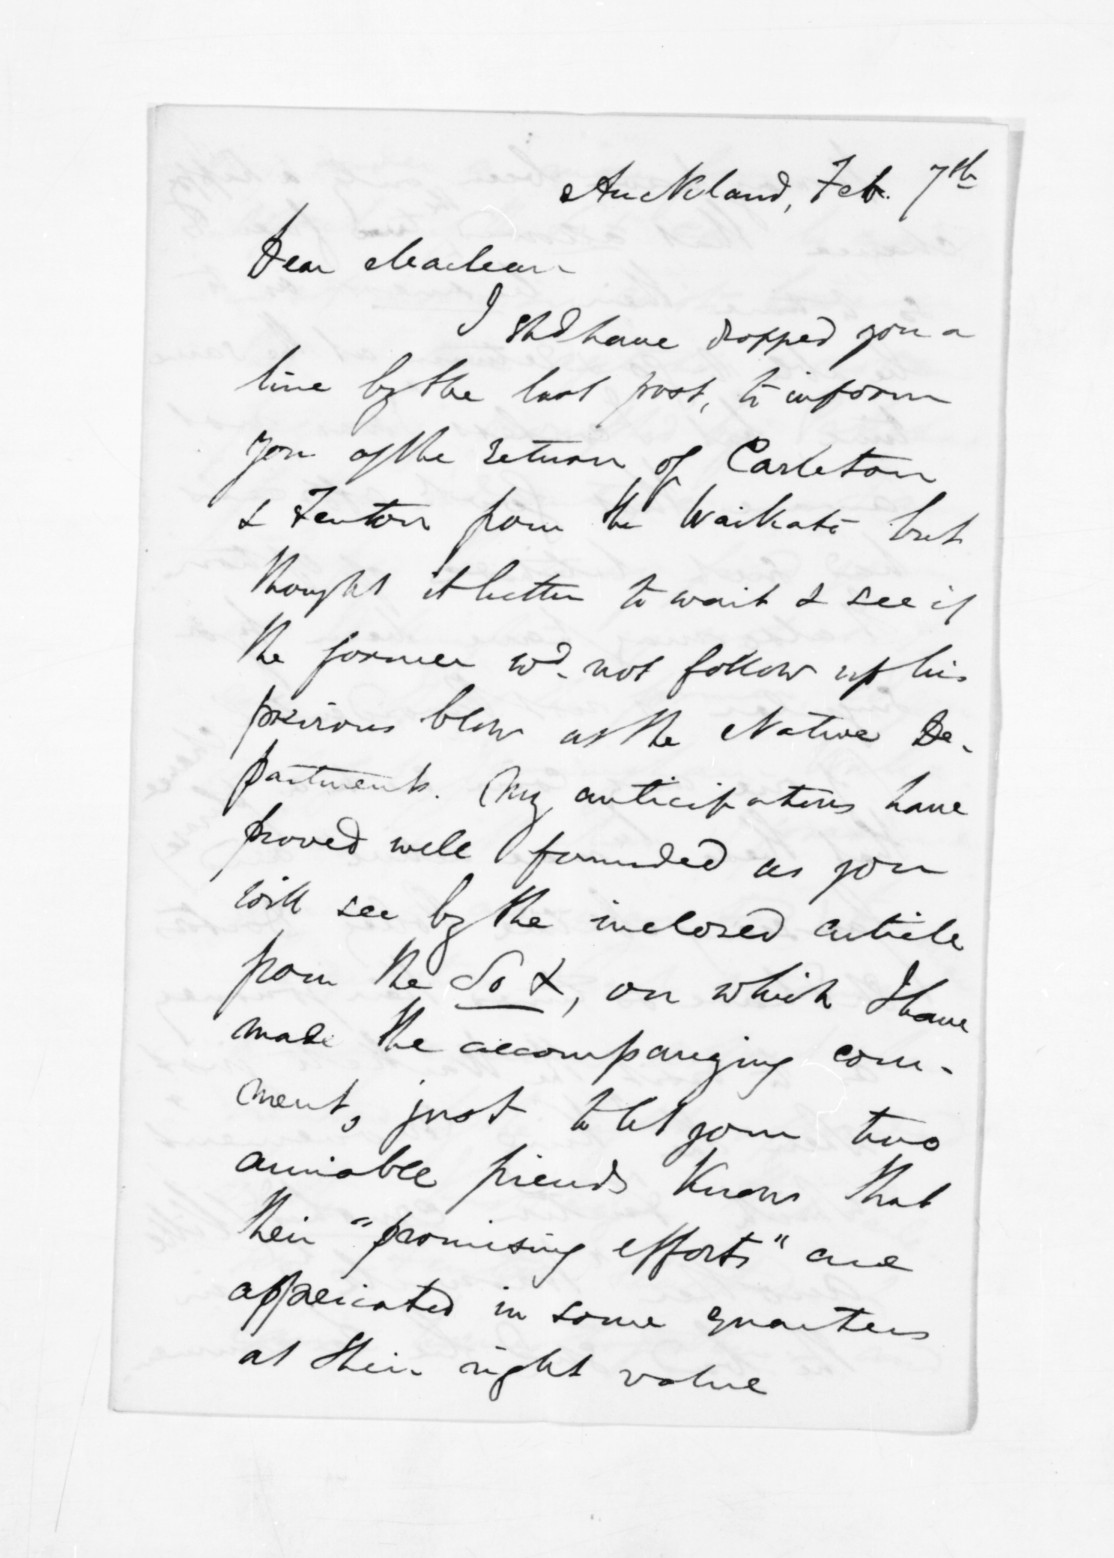 Auckland, Feb. 7th
Dear Maclean
I shd have dropped you a
line by the last post, to inform
you of the return of Carleton
& Fenton from the Waikato but
thought it better to wait & see if
the former wd. not follow up his
previous blow at the Native De-
partment. My anticipations have
proved well founded as you
will see by the inclosed article
from the So X, on which I have
made the accompanying com-
ment, just to let your two
amiable friends know that
their "promising efforts" are
appreciated in some quarters
at their right value